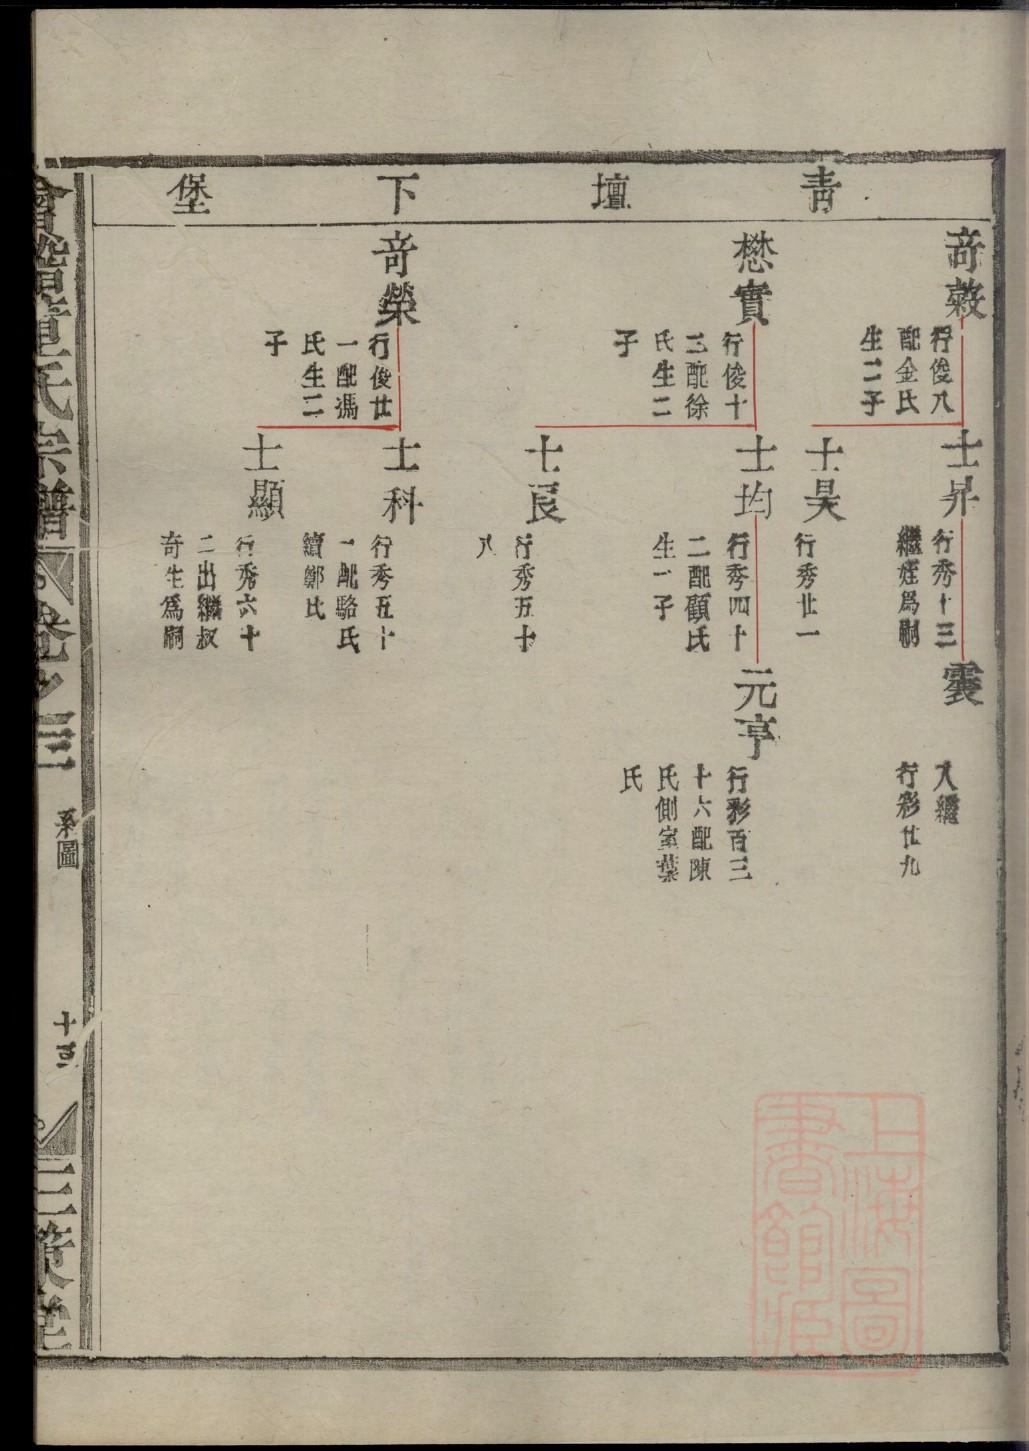 青壇下堡
奇穀
行俊八
配金氏
生二子
士昇
行秀十三
繼姪爲嗣
雲
入繼
行彩廿九
士昊
行秀廿一
懋實
行俊十
三配徐
氏生二
子
士均
行秀四十
二配顧氏
生一子
元亨
行彩百三
十六配陳
氏側室葉
氏
士良
行秀五十
八
奇榮
行俊廿
一配馮
氏生二
子
士科
行秀五十
一配駱氏
續鄭氏
士顯
行秀六十
二出繼叔
奇生爲嗣
會稽董氏宗譜
卷之三
系圖
三策堂
上海圖
書館藏